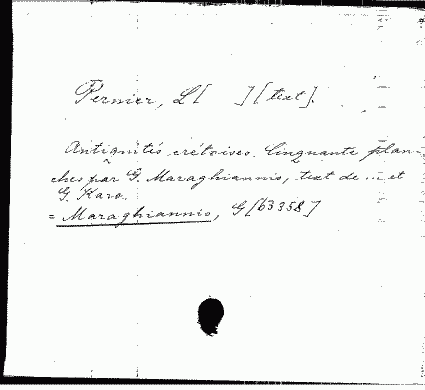 Pernier, L [ ] [text].
Antiquités crétoises. Cinquante plan-
ches par G. Maraghiannis, text de ... et
G. Karo.
= Maraghiannis, G [63358]